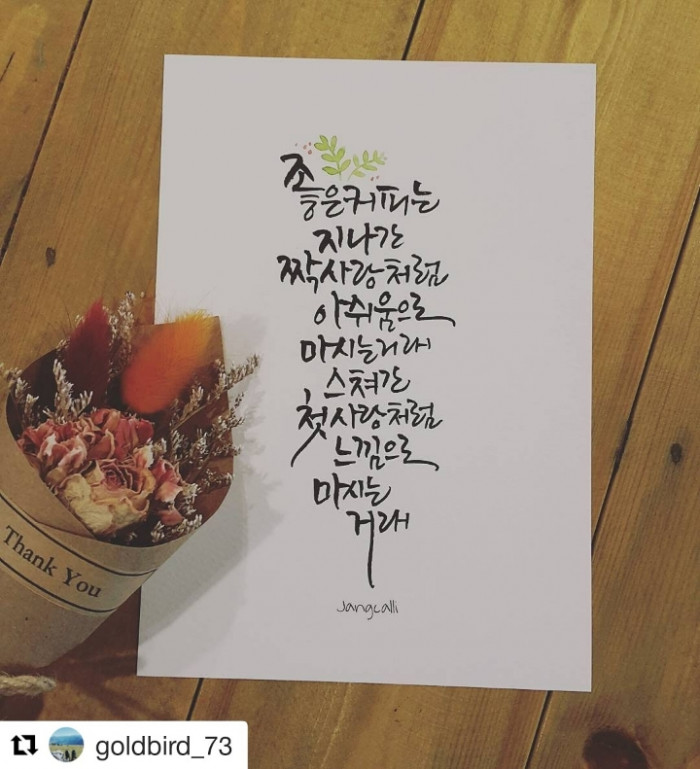 좋은커피는
지나간
짝사랑처럼
아쉬움으로
마시는거래
스쳐간
첫사랑처럼
느낌으로
마시는
거래
Jangcalli
Thank You
goldbird_73